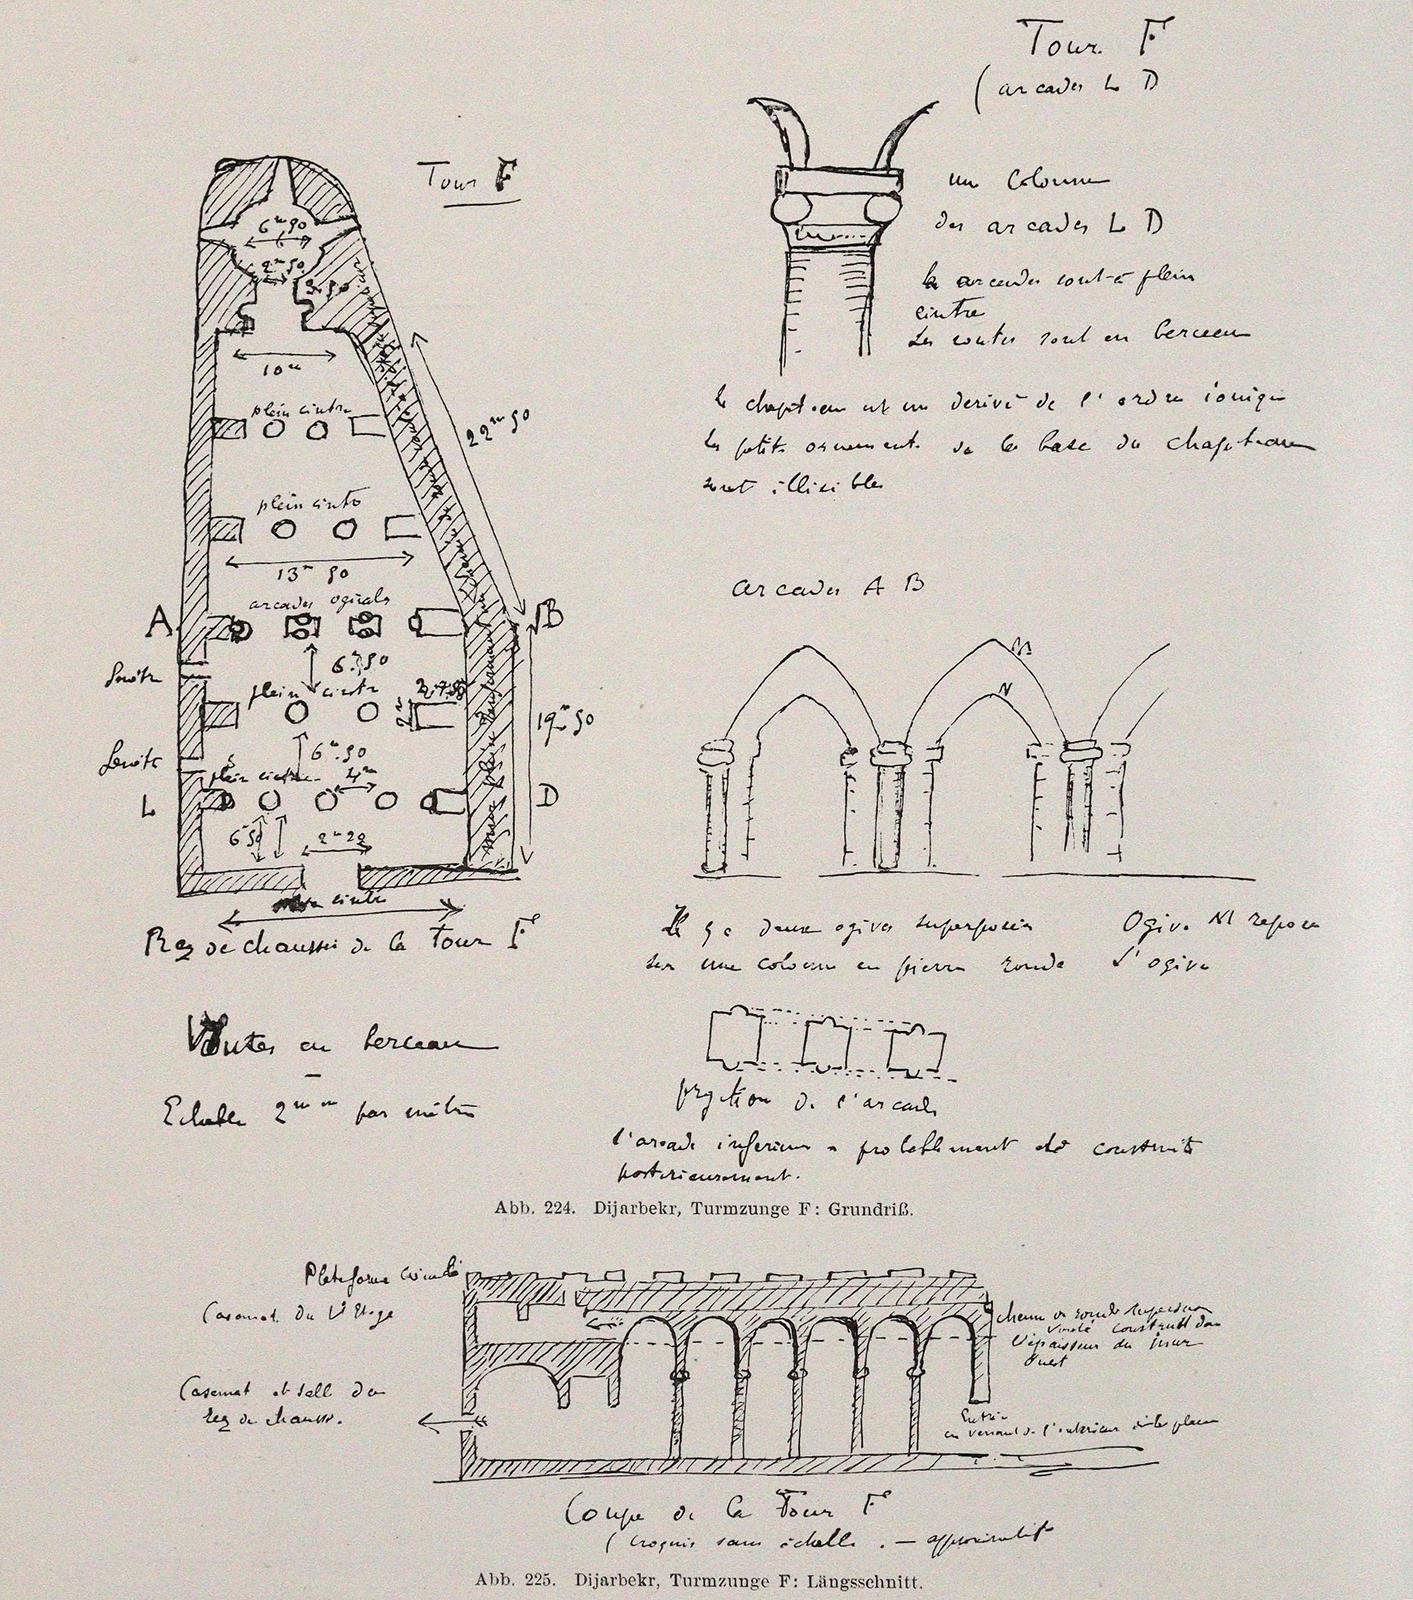 Tour F
(arcades L D
Tour F
un Colonne
des arcades L D
6m 50
2m 50
3.50
les arcades sont à plein
cintre
Les voutes sont en berceau
10m
plein cintre
22m 50
le chapiteau est un derivé de l'ordre ionique
les petits ornements de la base du chapiteau
sont illisibles
plein cintre
13m 50
arcades A B
arcades ogivales
A
B
6m 50
fenêtre
plein cintre
M
N
19m 50
6m 50
fenêtre
plein cintre
4m
L
D
6m 50
2m 22
plein cintre
Rez de chaussé de la Tour F
Il y a deux ogives superposées
Ogive M repose
sur une colonne en pierre ronde
L'ogive
Voutes en berceau
Echelle 2mm par mètre
projection de l'arcade
l'arcade inferieure a probablement été construite
posterieurement.
Abb. 224. Dijarbekr, Turmzunge F: Grundriß.
Plateforme
Casemate du 1er Etage
chemin de ronde superieur
vouté construit dans
l'épaisseur du mur
Ouest
Casemate et salle du
Rez de chaussé.
Entrée
en venant de l'interieur de la place
Coupe de la Tour F
(Croquis sans échelle. — approximatif
Abb. 225. Dijarbekr, Turmzunge F: Längsschnitt.